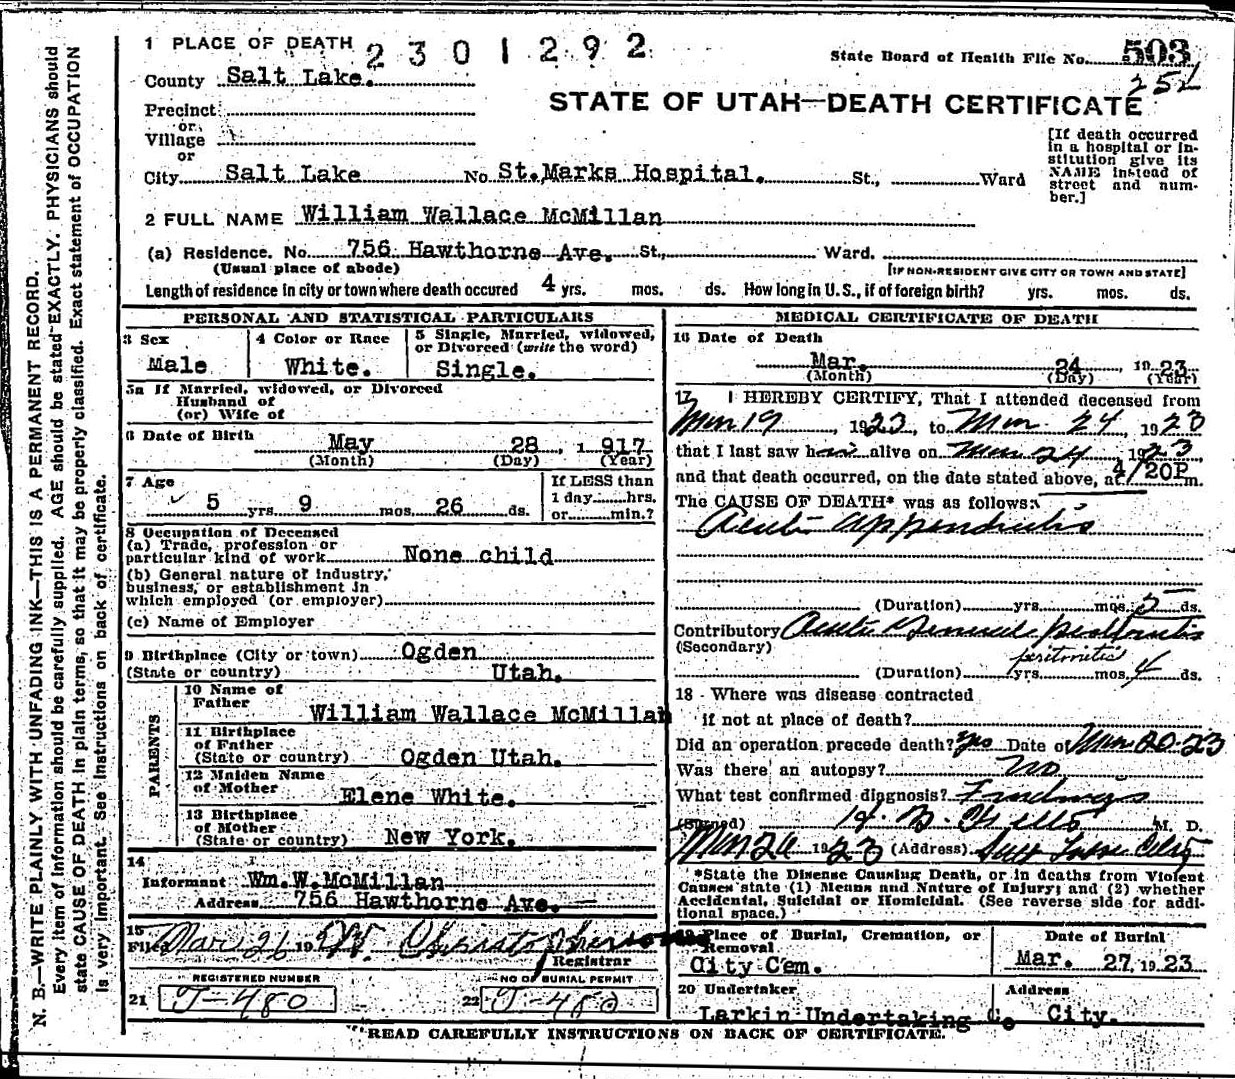 1 PLACE OF DEATH 2301292
State Board of Health File No. 503
252
County Salt Lake.
STATE OF UTAH—DEATH CERTIFICATE
Precinct
or
Village
or
City Salt Lake No St.Marks Hospital. St., Ward
[If death occurred in a hospital or institution give its NAME instead of street and number.]
2 FULL NAME William Wallace McMillan
(a) Residence. No. 756 Hawthorne Ave. St., Ward.
(Usual place of abode) [IF NON-RESIDENT GIVE CITY OR TOWN AND STATE]
Length of residence in city or town where death occured 4 yrs. mos. ds. How long in U. S., if of foreign birth? yrs. mos. ds.
PERSONAL AND STATISTICAL PARTICULARS
3 Sex
Male
4 Color or Race
White.
5 Single, Married, widowed,
or Divorced (write the word)
Single.
5a If Married, widowed, or Divorced
Husband of
(or) Wife of
6 Date of Birth May 28, 1 917
(Month) (Day) (Year)
7 Age
5 yrs. 9 mos. 26 ds.
If LESS than
1 day hrs.
or min.?
8 Occupation of Deceased
(a) Trade, profession or
particular kind of work None child
(b) General nature of industry,
business, or establishment in
which employed (or employer)
(c) Name of Employer
9 Birthplace (City or town) Ogden
(State or country) Utah.
PARENTS
10 Name of
Father
William Wallace McMillan
11 Birthplace
of Father
(State or country) Ogden Utah.
12 Maiden Name
of Mother
Elene White.
13 Birthplace
of Mother
(State or country) New York.
14
Informant Wm.W.McMillan
Address 756 Hawthorne Ave.
15
Filed Mar 26 19
Registrar
REGISTERED NUMBER
21 J-480
NO OF BURIAL PERMIT
22 J-480
MEDICAL CERTIFICATE OF DEATH
16 Date of Death
Mar. 24 19 23
(Month) (Day) (Year)
17 I HEREBY CERTIFY, That I attended deceased from
Mar 19, 1923, to Mar. 24 1923
that I last saw him alive on Mar 24, 1923,
and that death occurred, on the date stated above, at 4/20P m.
The CAUSE OF DEATH* was as follows:
Acute appendicitis
(Duration) yrs. mos. 5 ds.
Contributory Acute General peritonitis
(Secondary) peritonitis
(Duration) yrs. mos. 4 ds.
18 - Where was disease contracted
if not at place of death?
Did an operation precede death? Yes Date of Mar 20-23
Was there an autopsy? No
What test confirmed diagnosis? Findings
(Signed) M. D.
Mar 26 1923 (Address) Salt Lake City
*State the Disease Causing Death, or in deaths from Violent
Causes state (1) Means and Nature of Injury; and (2) whether
Accidental, Suicidal or Homicidal. (See reverse side for addi-
tional space.)
19 Place of Burial, Cremation, or
Removal
City Cem.
Date of Burial
Mar. 27, 1923
20 Undertaker
Larkin Undertaking Co
Address
City.
READ CAREFULLY INSTRUCTIONS ON BACK OF CERTIFICATE.
N. B.—WRITE PLAINLY WITH UNFADING INK—THIS IS A PERMANENT RECORD.
Every item of information should be carefully supplied. AGE should be stated EXACTLY. PHYSICIANS should
state CAUSE OF DEATH in plain terms, so that it may be properly classified. Exact statement of OCCUPATION
is very important. See instructions on back of certificate.